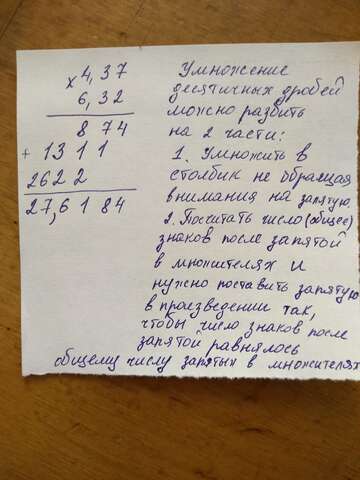 x 4,37
6,32
874
+ 1311
2622
27,6184
Умножение
десятичных дробей
можно разбить
на 2 части:
1. Умножить в
столбик не обращая
внимания на запятую
2. Посчитать число (общее)
знаков после запятой
в множителях и
нужно поставить запятую
в произведении так,
чтобы число знаков после
запятой равнялось
общему числу запятых в множителях